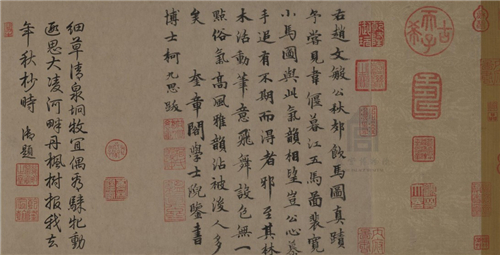 右趙文敏公秋郊飲馬圖真蹟
予嘗見韋偃暮江五馬圖裴寬
小馬圖與此氣韻相望豈公心慕
手追有不期而得者邪至其林
木活動筆意飛舞設色無一
點俗氣高風雅韻沾被後人多
矣 奎章閣學士院鑒書
博士柯九思跋
細草清泉坰牧宜偶看騋牝動
遐思大凌河畔丹楓樹報我去
年秋杪時 御題
古希天子